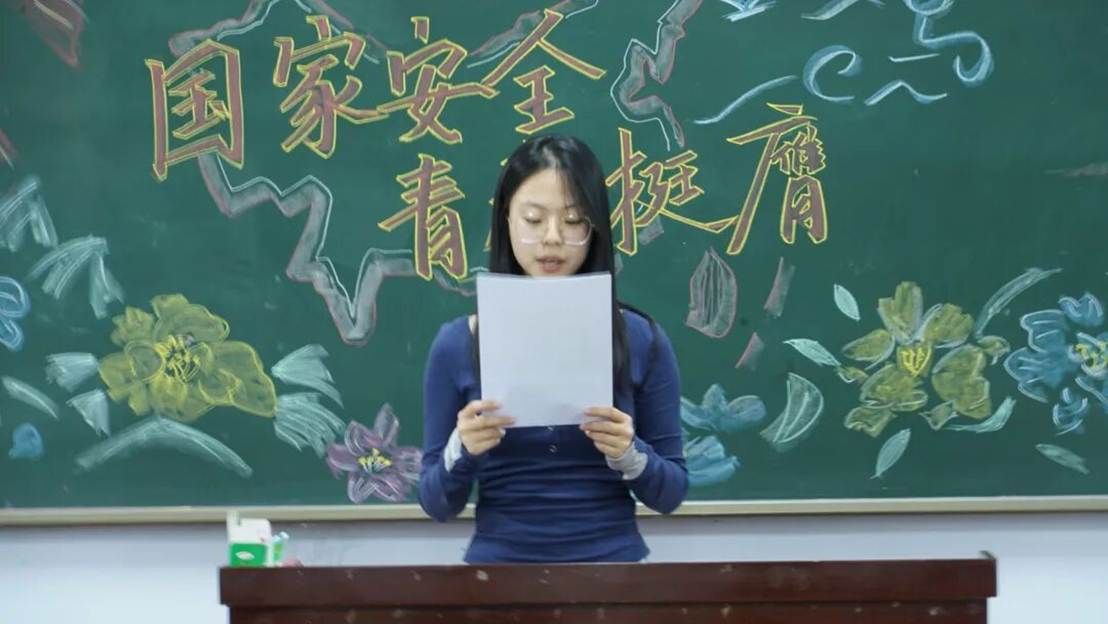 国家安全
青 挺膺